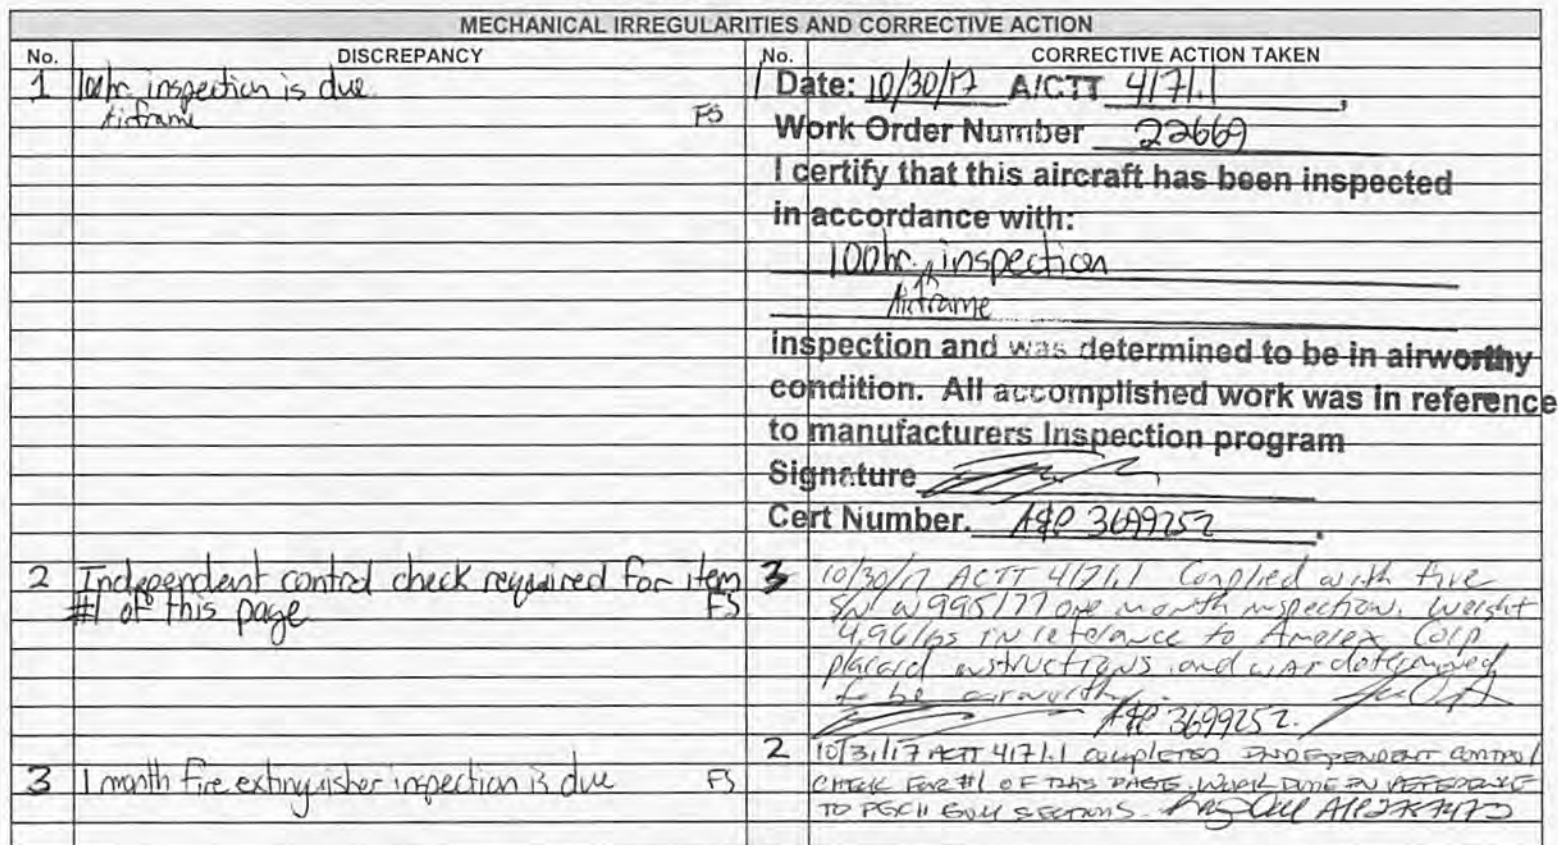 MECHANICAL IRREGULARITIES AND CORRECTIVE ACTION
No. DISCREPANCY No. CORRECTIVE ACTION TAKEN
1 100hr. inspection is due
Airframe FS
1 Date: 10/30/17 A/CTT 4171.1,
Work Order Number 22669
I certify that this aircraft has been inspected
in accordance with:
100hr. inspection
Airframe
inspection and was determined to be in airworthy
condition. All accomplished work was in reference
to manufacturers Inspection program
Signature
Cert Number. A&P 3699252.
2 Independent control check required for item
#1 of this page FS
3 10/30/17 ACTT 4171.1 Complied with fire
SN W995177 one month inspection. Weight
4.96 lbs in reference to Amerex Corp
placard instructions and was determined
to be airworthy.
A&P 3699252.
2 10/31/17 ACTT 4171.1 COMPLETED INDEPENDENT CONTROL
CHECK FOR #1 OF THIS PAGE. WORK DONE IN REFERENCE
TO SECTIONS.
3 1 month fire extinguisher inspection is due FS